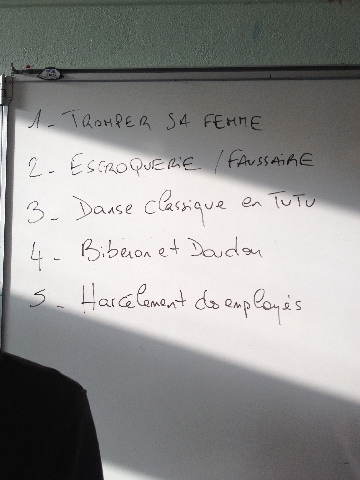 1 - TROMPER SA FEMME
2 - ESCROQUERIE / FAUSSAIRE
3 - Danse classique en TuTu
4 - Biberon et Doudou
5 - Harcèlement des employés